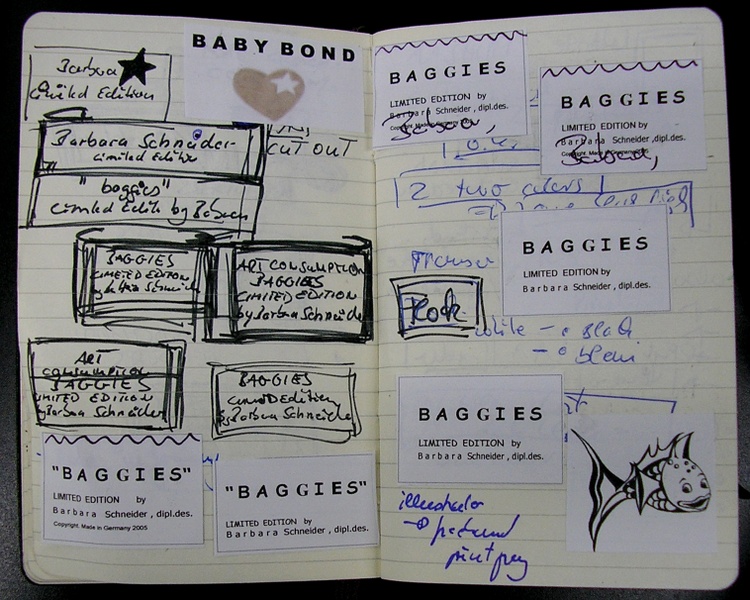 Barbara
Limited Edition
BABY BOND
Barbara Schneider
Limited Edition
CUT OUT
"baggies"
Limited Edition by
BAGGIES
LIMITED EDITION
by Barbara Schneider
ART CONSUMPTION
BAGGIES
LIMITED EDITION
by Barbara Schneider
ART
CONSUMPTION
BAGGIES
LIMITED EDITION
by Barbara Schneider
BAGGIES
Limited Edition
By Barbara Schneider
"BAGGIES"
LIMITED EDITION by
Barbara Schneider, dipl.des.
Copyright. Made in Germany 2005
"BAGGIES"
LIMITED EDITION by
Barbara Schneider, dipl.des.
BAGGIES
LIMITED EDITION by
Barbara Schneider, dipl.des.
Copyright. Made in Germany 2005
BAGGIES
LIMITED EDITION by
Barbara Schneider, dipl.des.
Copyright. Made in Germany 2005
2 two colors
BAGGIES
LIMITED EDITION by
Barbara Schneider, dipl.des.
Rock
white
BAGGIES
LIMITED EDITION by
Barbara Schneider, dipl.des.
illustrator